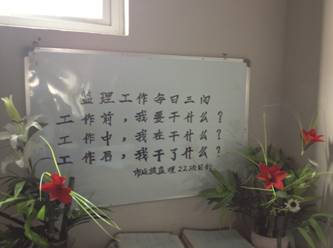 监理工作每日三问
工作前，我要干什么？
工作中，我在干什么？
工作后，我干了什么？
监理22